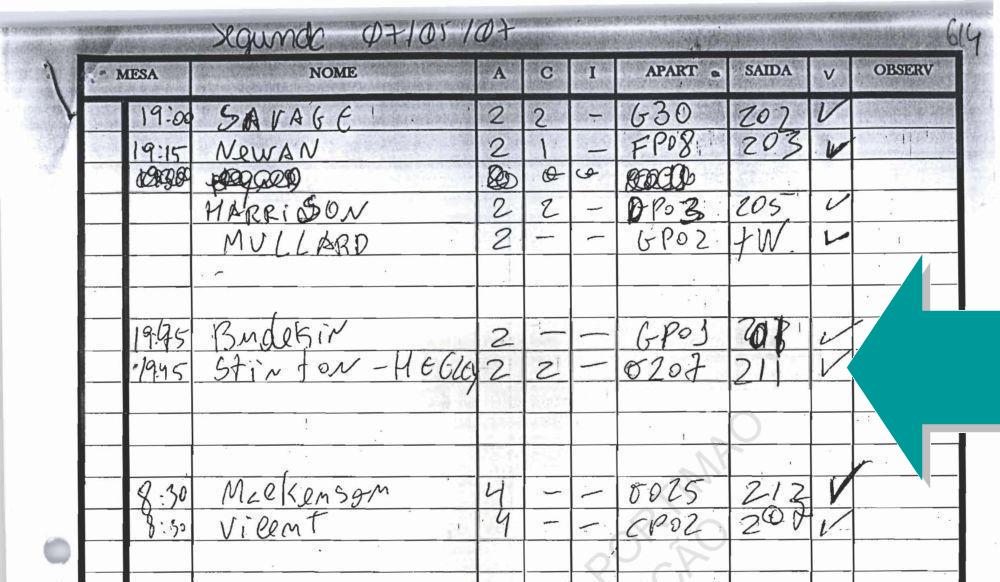 Segunda 07/05/07 614
MESA NOME A C I APART SAIDA V OBSERV
19:00 SAVAGE 2 2 - G30 202 ✓
19:15 NEWAN 2 1 - FP08 203 ✓
HARRISON 2 2 - DP03 205 ✓
MULLARD 2 - - GP02 TW. ✓
19:45 2 - - GP01 ✓
19:45 Stinton - HEGLEY 2 2 - 0207 211 ✓
8:30 4 - - 0025 212 ✓
8:30 4 - - CP02 ✓
PORTIMAO